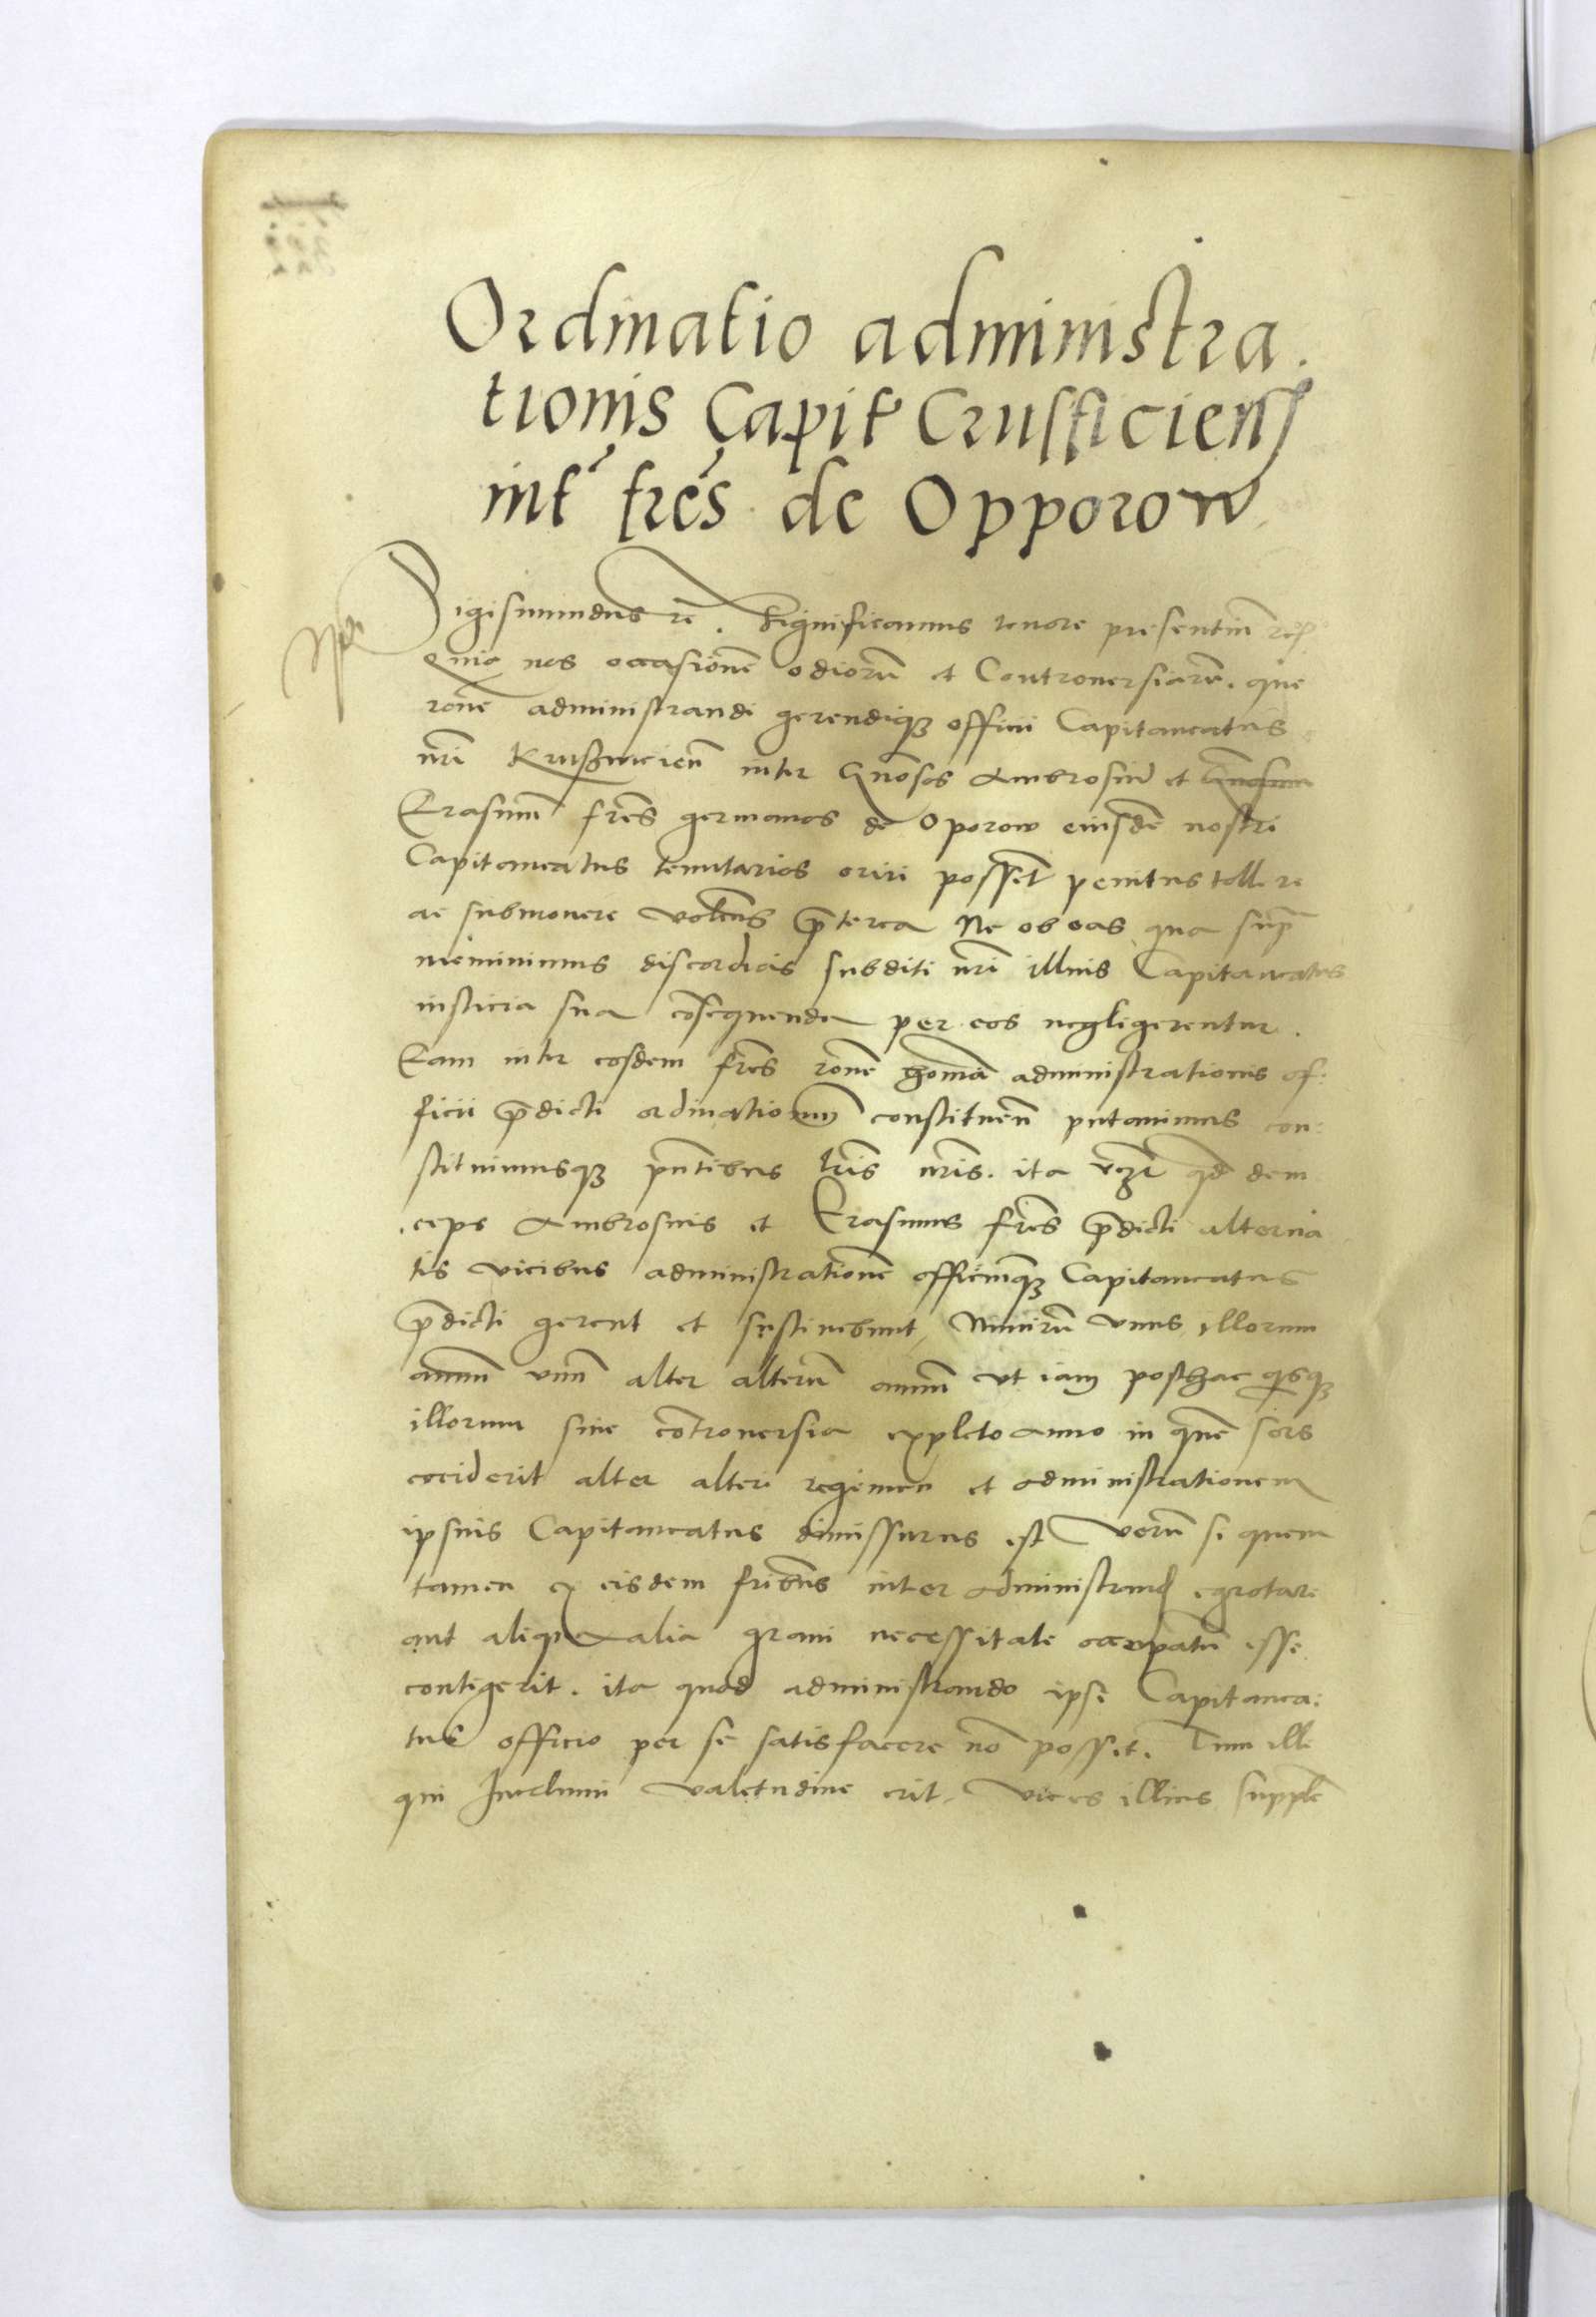 Ordinatio administra
tionis Capit Crusficiens
int fres de Opporow
Sigismundus rc. Significamus tenore presentiu rc
Quia nos occasione odioru et Controuersiaru. que
rone administrandi gerendiqz officii Capitaneatus
nri inter Gnosos Ambrosiu et
Erasmu fres germanos de Oporow eiusde nostri
Capitaneatus tenutarios oriri posset penitus tollere
ac submouere volens preterea Ne ob eas qua supra
meminimus discordias subditi nri illius Capitaneatus
iusticia sua cosequenda per eos negligerentur.
Eam inter eosdem fres rone administrationis of:
ficii predicti ordinationem constituen putauimus con:
stituimusqz pntibus lris nris. ita vczt qd dein
ceps Ambrosius et Erasmus fres predicti alterna
tis vicibus administratione officiumqz Capitaneatus
predicti gerent et sustinebunt, Nimiru vnus illorum
annu vnu alter alteru annu vt iam posthac qisqz
illorum sine cotrouersia expleto anno in que sors
ceciderit alter alteri regimen et administrationem
ipsius Capitaneatus dimissurus est Veru si quem
tamen ex eisdem fribus inter administrand egrotare
aut aliqua alia graui necessitate occupatu esse
contigerit. ita quod administrando ipse Capitanea:
tus officio per se satisfacere no posset. Tum ille
qui Incolumi valetudine erit, vices illius supple